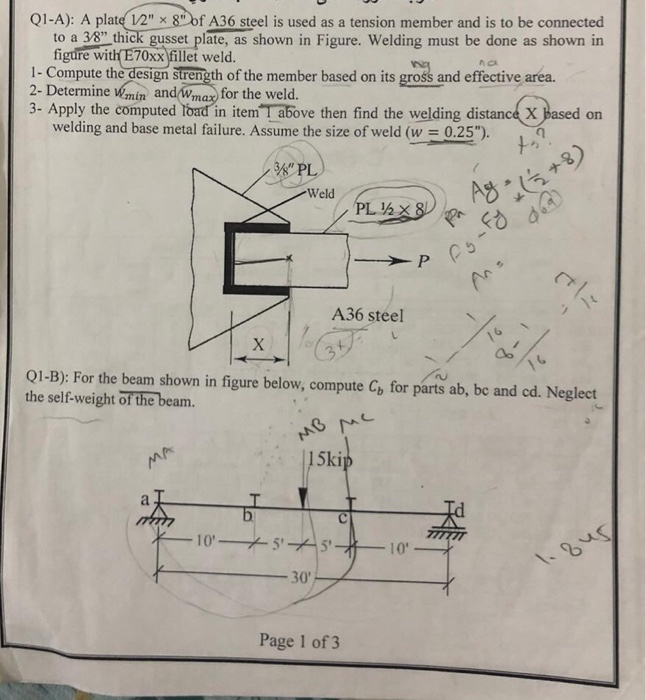 Q1-A): A plate 1/2" × 8" of A36 steel is used as a tension member and is to be connected
to a 3/8" thick gusset plate, as shown in Figure. Welding must be done as shown in
figure with E70xx fillet weld.
1- Compute the design strength of the member based on its gross and effective area.
2- Determine wmin and wmax for the weld.
3- Apply the computed load in item 1 above then find the welding distance X based on
welding and base metal failure. Assume the size of weld (w = 0.25").
3/8" PL
Weld
PL 1/2 × 8
P
A36 steel
X
Q1-B): For the beam shown in figure below, compute Cb for parts ab, bc and cd. Neglect
the self-weight of the beam.
MB Mc
MA
15kip
a
b
c
d
10'
5'
5'
10'
30'
Page 1 of 3